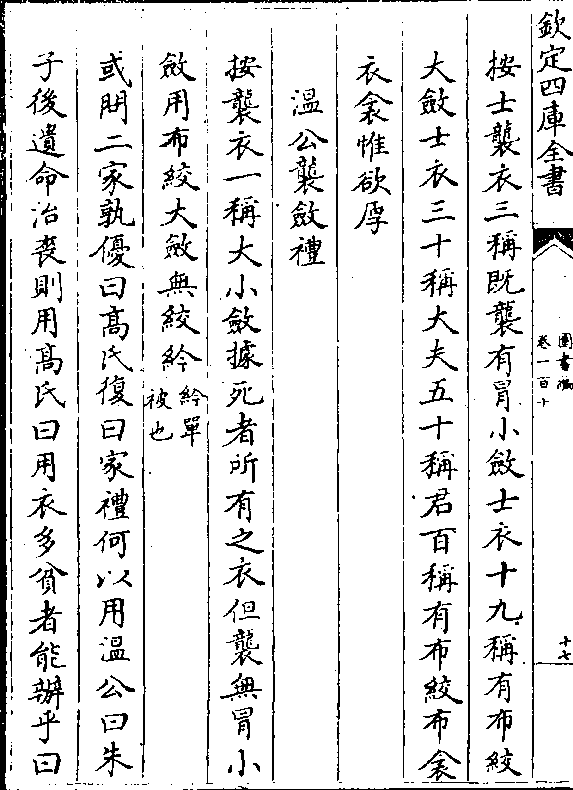 欽定四庫全書
圖書編
卷一百十
十七
按士襲衣三稱既襲有冒小斂士衣十九稱有布絞
大斂士衣三十稱大夫五十稱君百稱有布絞布衾
衣衾惟欲厚
溫公襲斂禮
按襲衣一稱大小斂據死者所有之衣但襲無冒小
斂用布絞大斂無絞紟紟單被也
或問二家孰優曰髙氏復曰家禮何以用溫公曰朱
子後遺命治喪則用髙氏曰用衣多貧者能辦乎曰